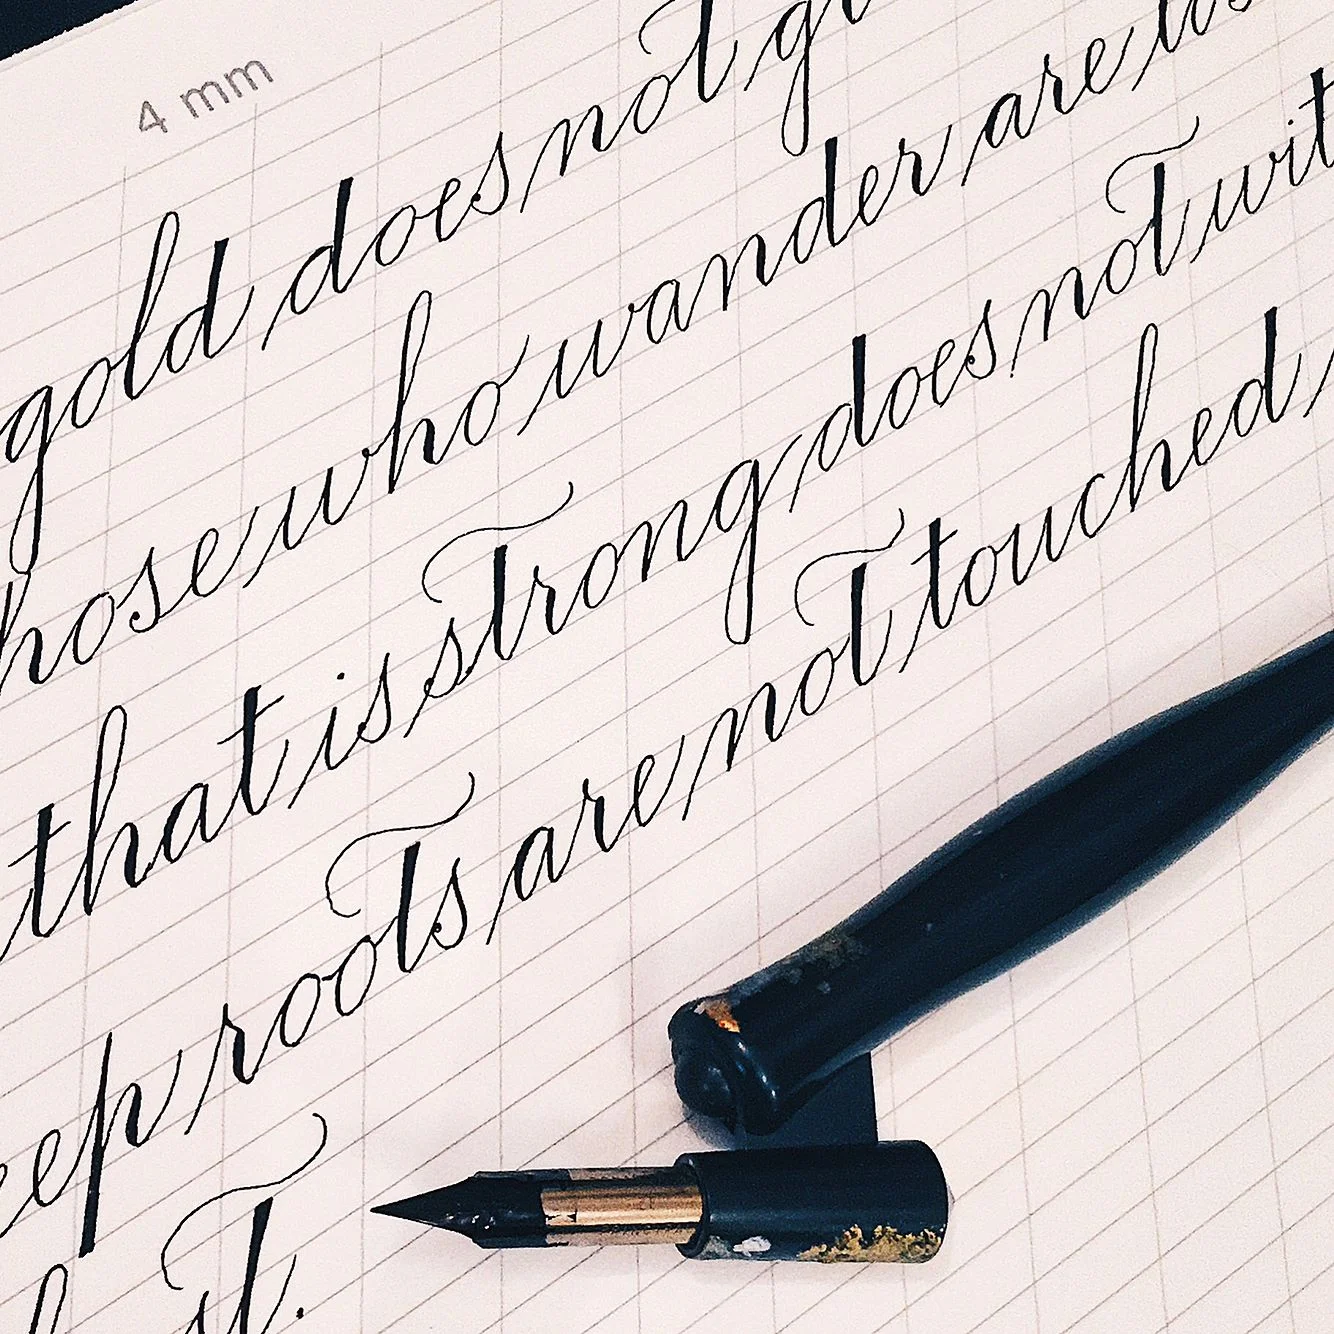 4 mm
gold does not
who wander are
that is strong does not
roots are not touched